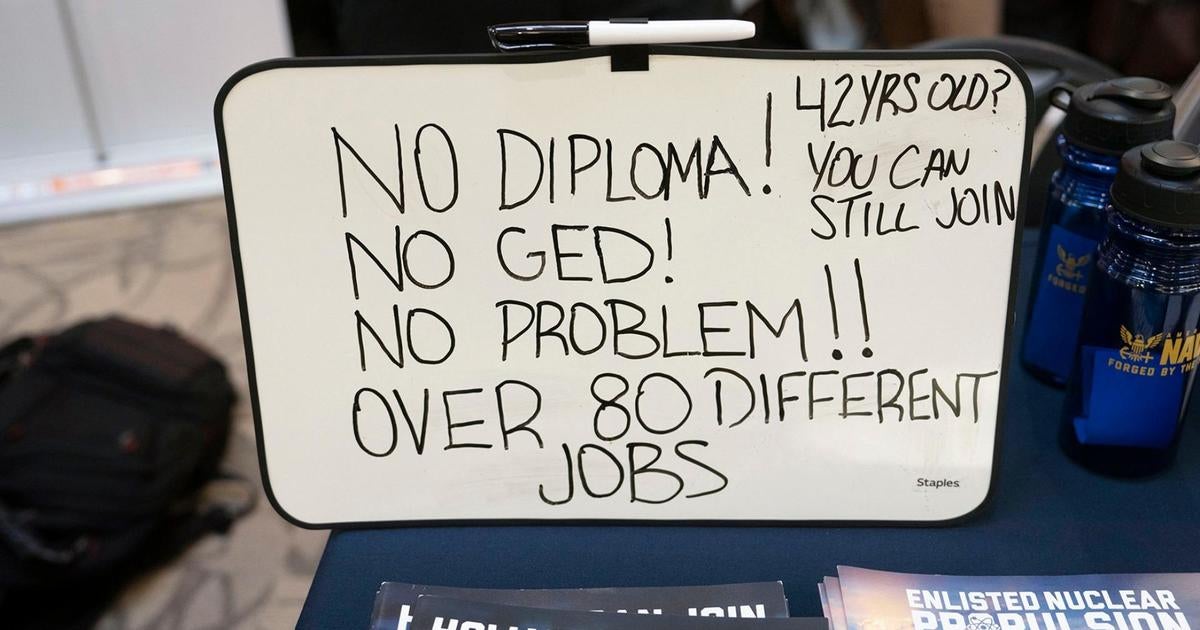 NO DIPLOMA!
NO GED!
NO PROBLEM!!
OVER 80 DIFFERENT
JOBS
42YRS OLD?
YOU CAN
STILL JOIN
Staples
FORGED
FORGED BY THE
JOIN
ENLISTED NUCLEAR
PROPULSION